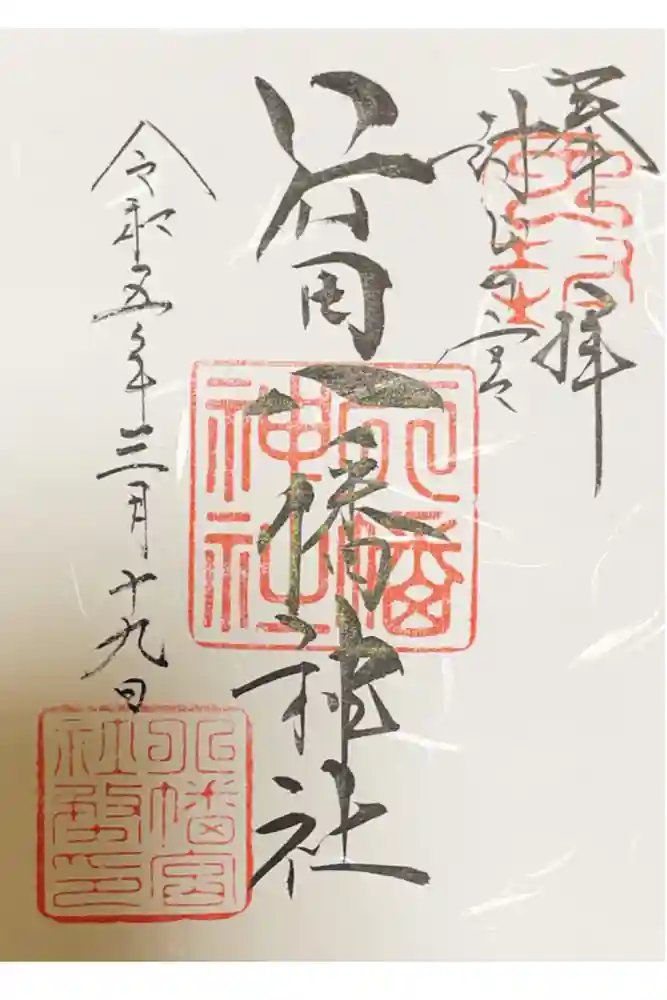 奉拝
谷田八幡神社
八幡
神社
令和五年三月十九日
八幡宮
社務印